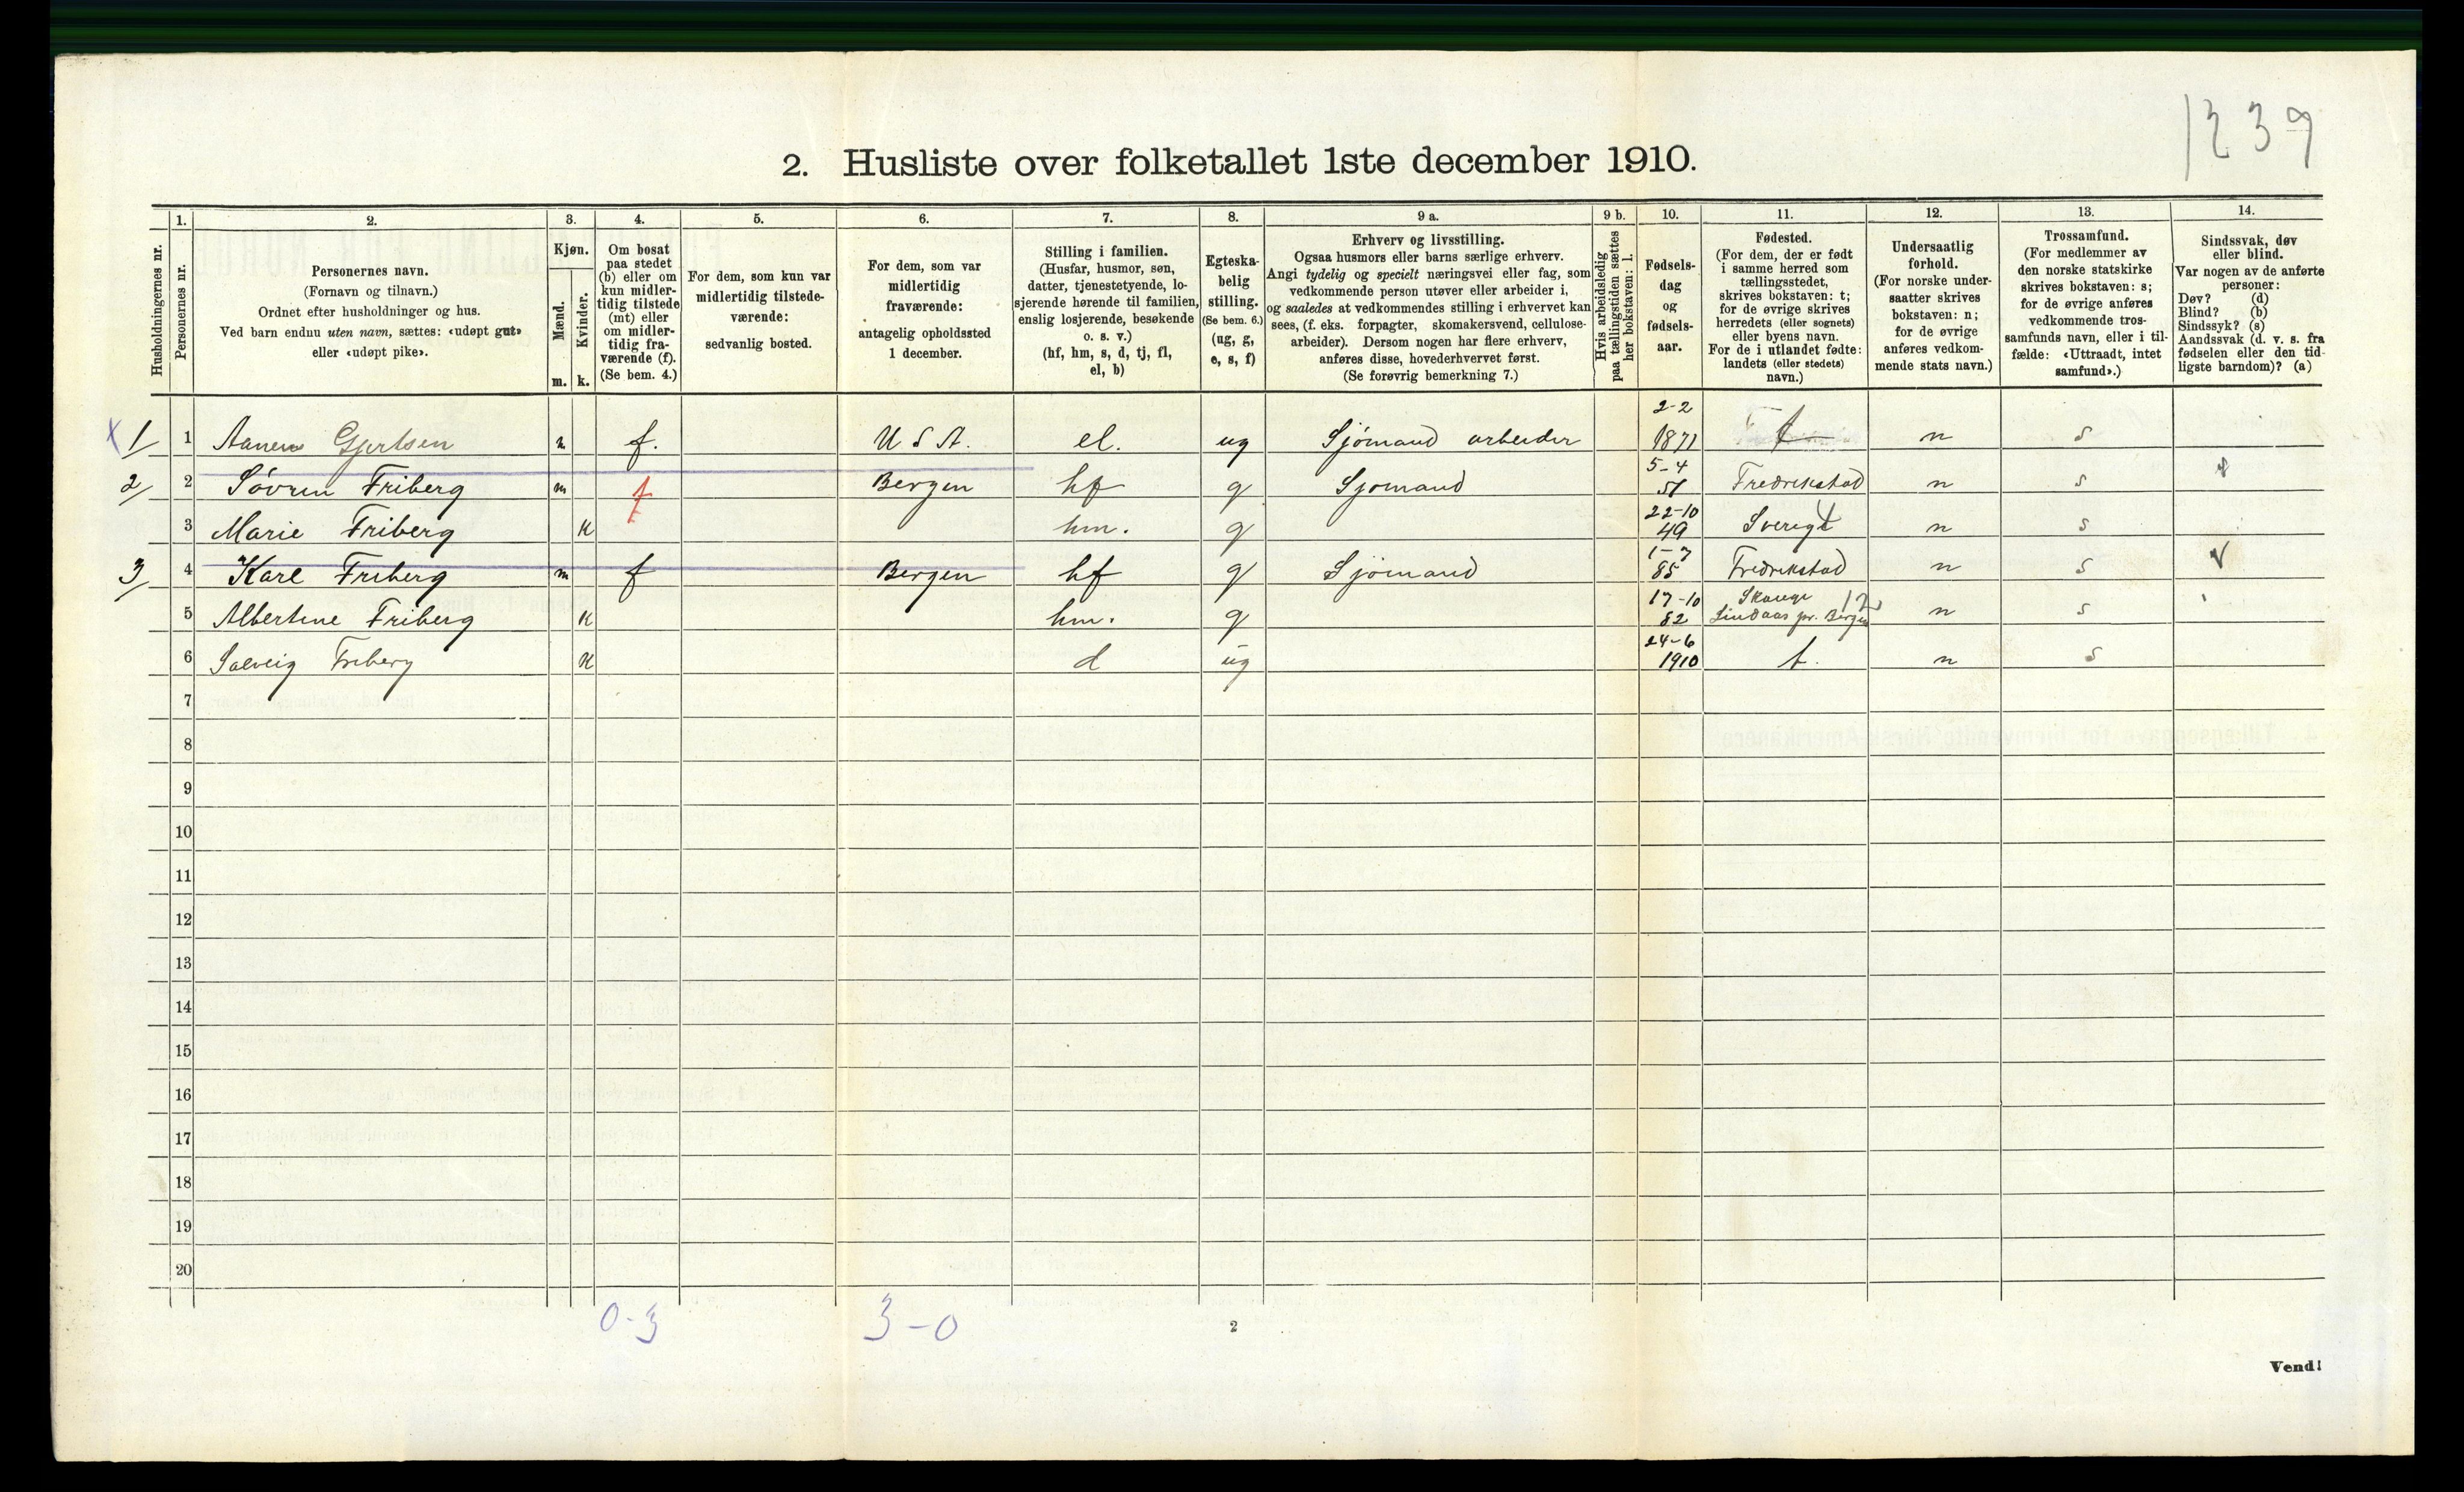 1239
2. Husliste over folketallet 1ste december 1910.
Husholdningernes nr.
1. Personernes nr.
2. Personernes navn.
(Fornavn og tilnavn.)
Ordnet efter husholdninger og hus.
Ved barn endnu uten navn, sættes: «udøpt gut»
eller «udøpt pike».
3. Kjøn.
Mænd. m.
Kvinder. k.
4. Om bosat
paa stedet
(b) eller om
kun midler-
tidig tilstede
(mt) eller
om midler-
tidig fra-
værende (f).
(Se bem. 4.)
5. For dem, som kun var
midlertidig tilstede-
værende:
sedvanlig bosted.
6. For dem, som var
midlertidig
fraværende:
antagelig opholdssted
1 december.
7. Stilling i familien.
(Husfar, husmor, søn,
datter, tjenestetyende, lo-
sjerende hørende til familien,
enslig losjerende, besøkende
o. s. v.)
(hf, hm, s, d, tj, fl,
el, b)
8. Egteska-
belig
stilling.
(Se bem. 6.)
(ug, g,
e, s, f)
9 a. Erhverv og livsstilling.
Ogsaa husmors eller barns særlige erhverv.
Angi tydelig og specielt næringsvei eller fag, som
vedkommende person utøver eller arbeider i,
og saaledes at vedkommendes stilling i erhvervet kan
sees, (f. eks. forpagter, skomakersvend, cellulose-
arbeider). Dersom nogen har flere erhverv,
anføres disse, hovederhvervet først.
(Se forøvrig bemerkning 7.)
9 b. Hvis arbeidsledig
paa tællingstiden sættes
her bokstaven: l.
10. Fødsels-
dag
og
fødsels-
aar.
11. Fødested.
(For dem, der er født
i samme herred som
tællingsstedet,
skrives bokstaven: t;
for de øvrige skrives
herredets (eller sognets)
eller byens navn.
For de i utlandet fødte:
landets (eller stedets)
navn.)
12. Undersaatlig
forhold.
(For norske under-
saatter skrives
bokstaven: n;
for de øvrige
anføres vedkom-
mende stats navn.)
13. Trossamfund.
(For medlemmer av
den norske statskirke
skrives bokstaven: s;
for de øvrige anføres
vedkommende tros-
samfunds navn, eller i til-
fælde: «Uttraadt, intet
samfund».)
14. Sindssvak, døv
eller blind.
Var nogen av de anførte
personer:
Døv? (d)
Blind? (b)
Sindssyk? (s)
Aandssvak (d. v. s. fra
fødselen eller den tid-
ligste barndom)? (a)
x 1/ 1 Gjertsen f. U S A. el. ug Sjömand arbeider 2-2 1871 t n s
2/ 2 Sövren Friberg m f Bergen hf g Sjömand 5-4 51 Fredrikstad n s
3 Marie Friberg k hm. g 22-10 49 Sverige n s
3/ 4 Karl Friberg m f Bergen hf g Sjömand 1-7 85 Fredrikstad n s
5 Albertine Friberg k hm. g 17-10 82 Lindaas pr. Bergen 12 n s
6 Solveig Friberg k d ug 24-6 1910 t. n s
7
8
9
10
11
12
13
14
15
16
17
18
19
20
0-3 3-0
2
Vend!